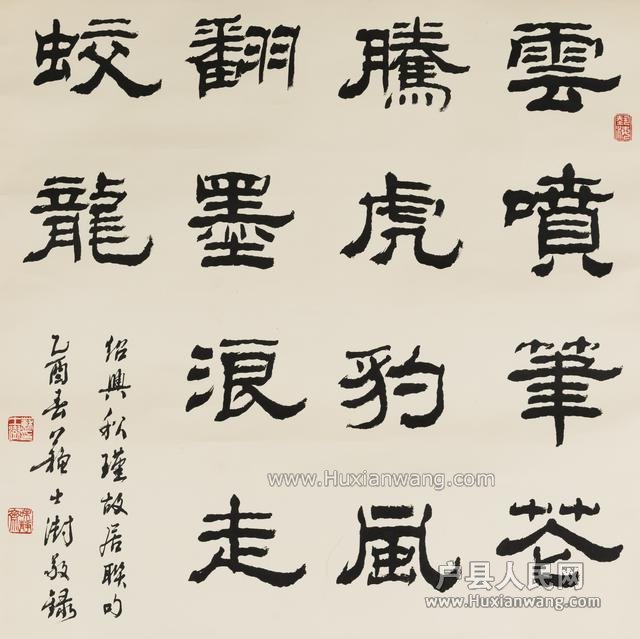 雲噴筆花
騰虎豹風
翻墨浪走
蛟龍
紹興秋瑾故居聯句
乙酉春蘇士澍敬錄
www.Huxianwang.com
户县人民网
www.Huxianwang.com